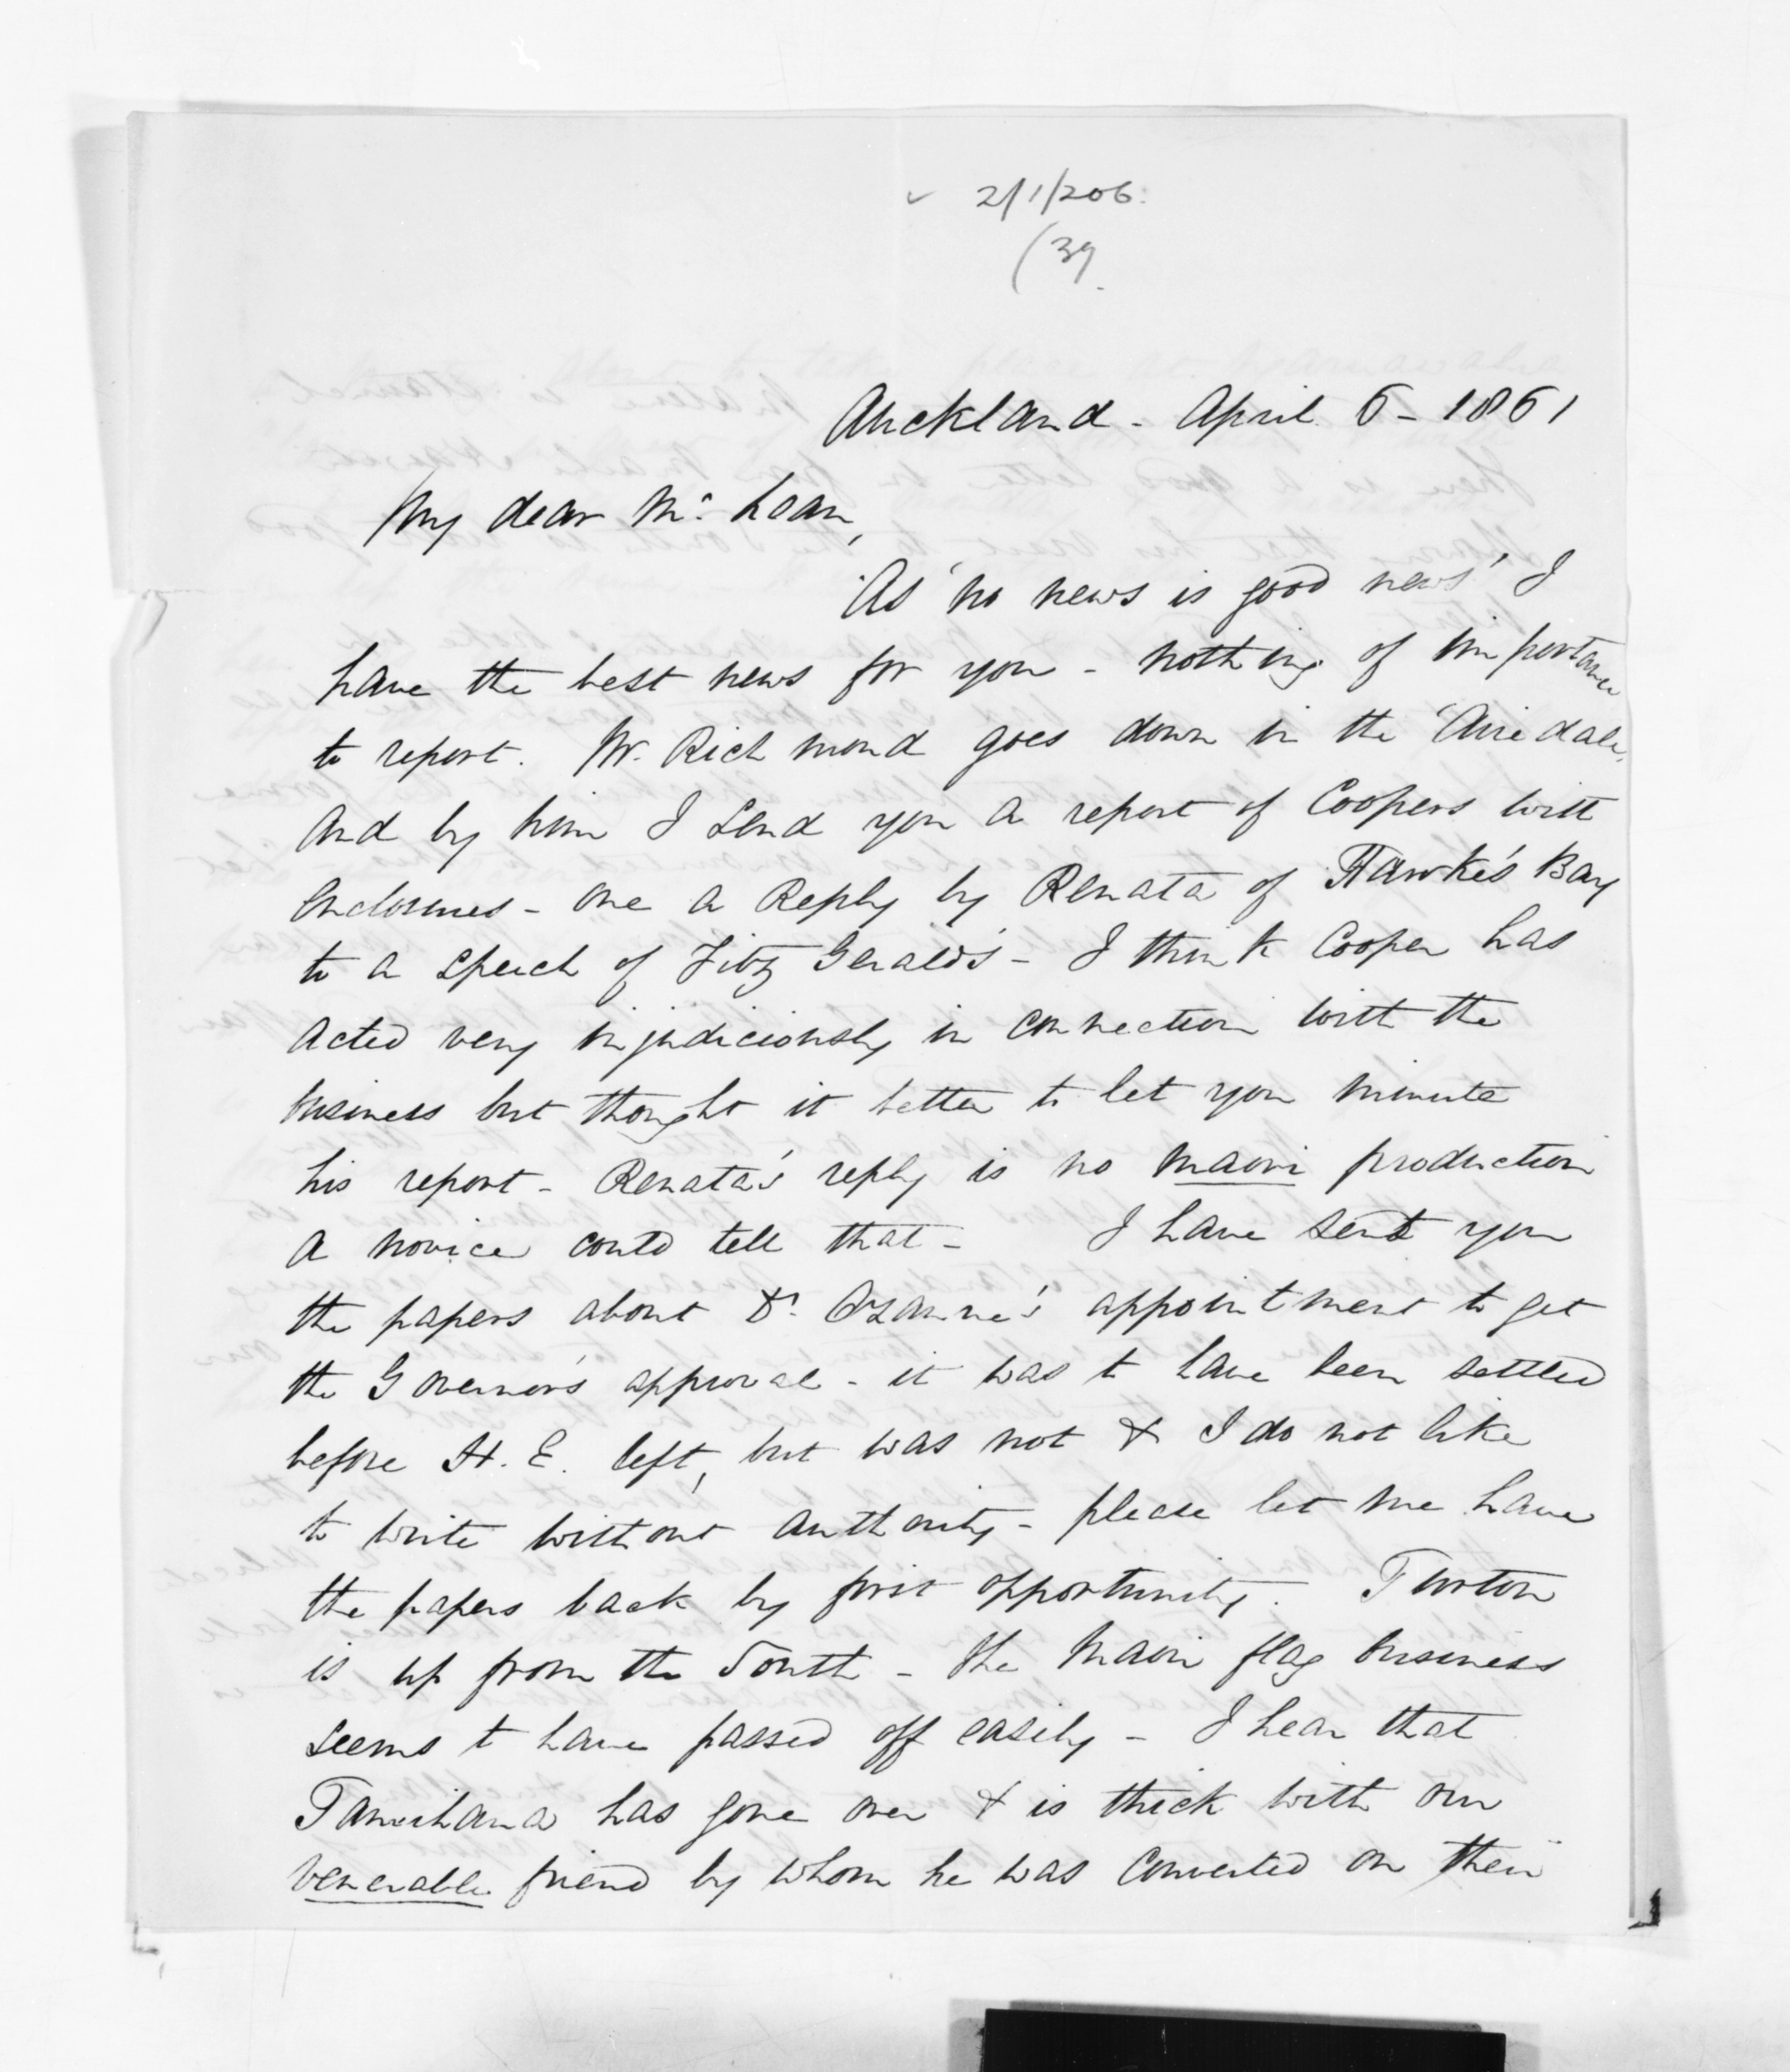 2/1/206.
(39.
Auckland - April 6 - 1861
My dear Mc. Lean,
'As 'no news is good news' I
have the best news for you - nothing of importance
to report. Mr. Richmond goes down in the 'Airedale,
and by him I send you a report of Coopers with
enclosures - one a Reply by Renata of Hawke's Bay
to a speech of Fitz Gerald's - I think Cooper has
acted very injudiciously in connection with the
business but thought it better to let you minute
his report - Renata's reply is no Maori production
a novice could tell that - I have sent you
the papers about Dr. Ozanne's appointment to get
the Governor's approval - it was to have been settled
before H. E. left, but was not & I do not like
to write without authority - please let me have
the papers back by first opportunity. Turton
is up from the South - the Maori flag business
seems to have passed off easily - I hear that
Tamihana has gone over & is thick with our
venerable friend by whom he was converted on their